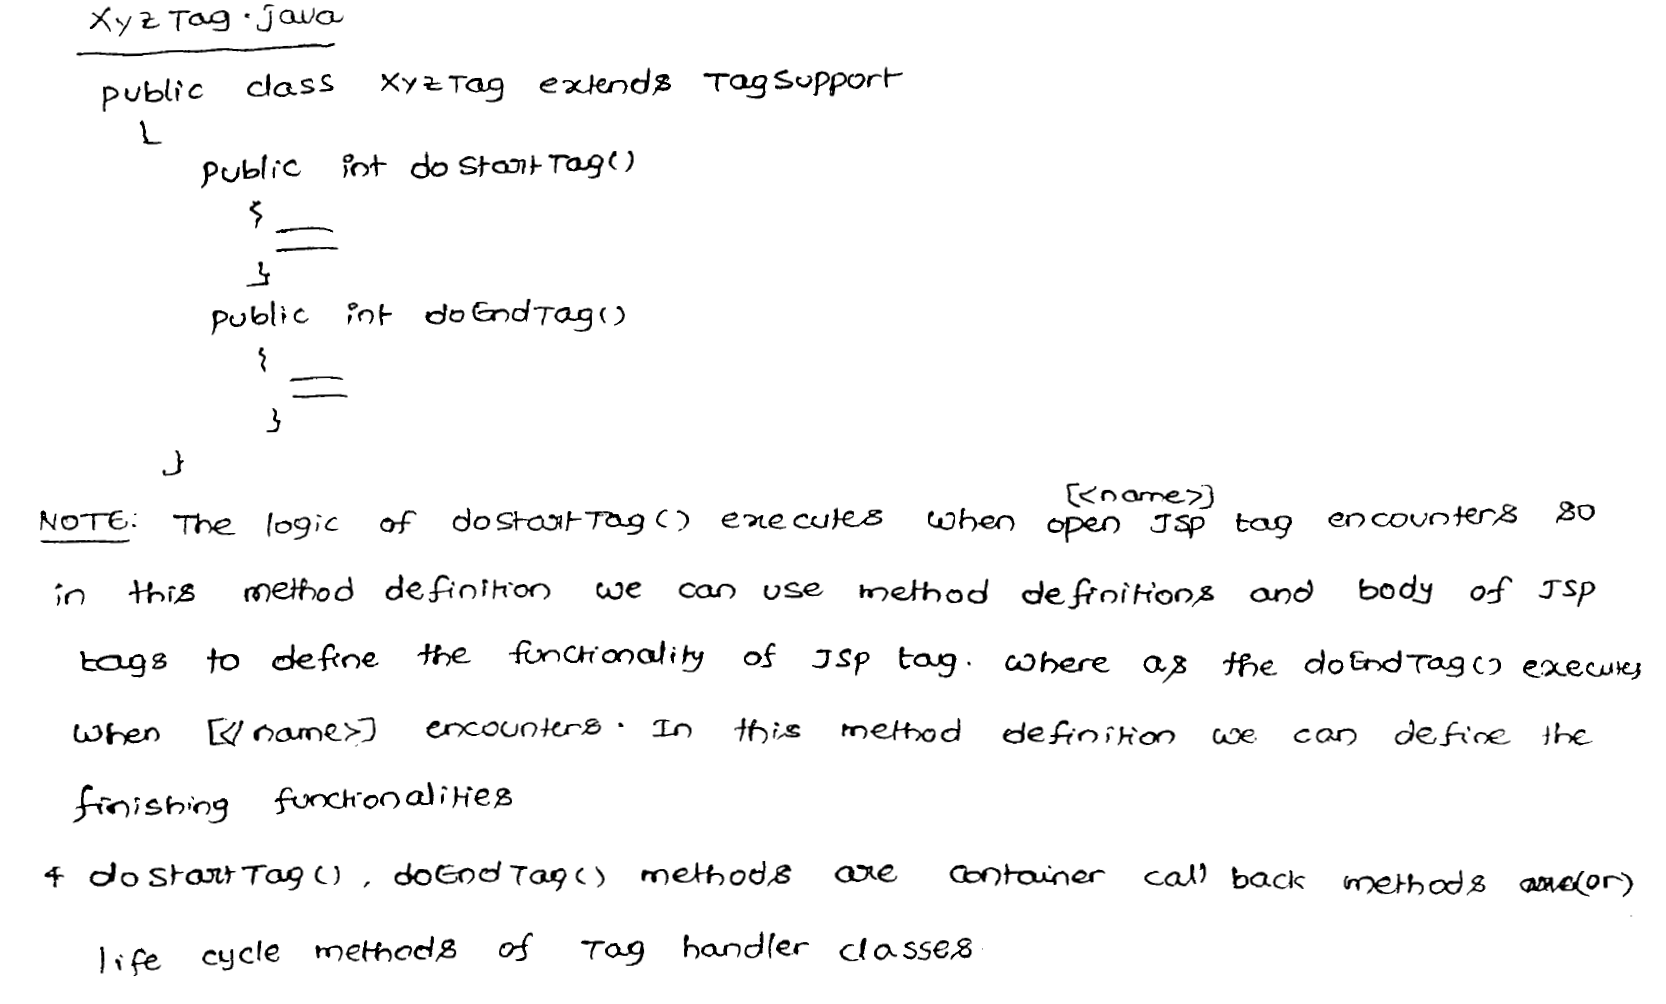 XyzTag.java
public class XyzTag extends TagSupport
{
public int doStartTag()
{
}
public int doEndTag()
{
}
}
[<name>]
NOTE: The logic of doStartTag() executes when open JSP tag encounters so
in this method definition we can use method definitions and body of JSP
tags to define the functionality of JSP tag. where as the doEndTag() executes
when [</name>] encounters. In this method definition we can define the
finishing functionalities
* doStartTag(), doEndTag() methods are container call back methods and(or)
life cycle methods of Tag handler classes.